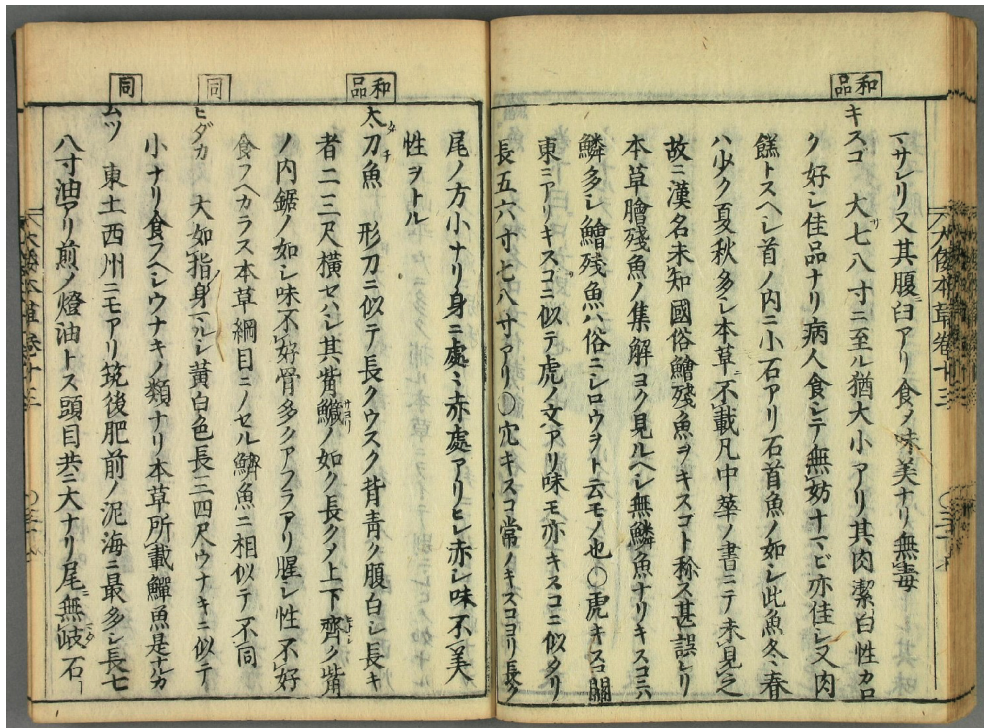 大倭本草卷十三
和品
マサレリ又其腹ニ臼アリ食ノ味美ナリ無毒
キスコ 大七八寸ニ至ル猶大小アリ其肉潔白性カロ
ク好シ佳品ナリ病人食シテ無妨ナマビ亦佳シ又肉
餻トスヘシ首ノ内ニ小石アリ石首魚ノ如シ此魚冬春
ハ少ク夏秋多シ本草ニ不載凡中華ノ書ニテ未見之
故ニ漢名未知國俗鱠殘魚ヲキスコト称ス甚誤レリ
本草膾殘魚ノ集解ヨク見ルヘシ無鱗魚ナリキスコニハ
鱗多シ鱠殘魚ハ俗ニシロウヲト云モノ也〇虎キスコ關
東ニアリキスコニ似テ虎ノ文アリ味モ亦キスコニ似タリ
長五六寸七八寸アリ〇穴キスコ常ノキスコヨリ長ク
尾ノ方小ナリ身ニ處ミ赤處アリヒレ赤シ味不美
性ヲトル
和品
太刀魚 形刀ニ似テ長クウスク背青ク腹白シ長キ
者二三尺横セハシ其觜鱵ノ如ク長ク上下齊ク觜
ノ内鋸ノ如シ味不好骨多クアフラアリ腥シ性不好
食フヘカラス本草綱目ニノセル鱭魚ニ相似テ不同
同
ヒダカ 大如指身マルシ黄白色長三四尺ウナキニ似テ
小ナリ食フヘシウナキノ類ナリ本草所載鱓魚是ナルカ
同
ムツ 東土西州ニモアリ筑後肥前ノ泥海ニ最多シ長七
八寸油アリ煎メ燈油トス頭目共ニ大ナリ尾無岐石
大倭本草卷十三